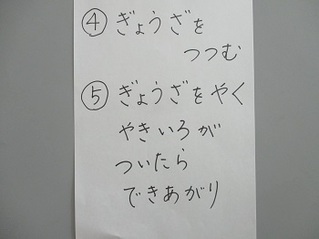 ④ ぎょうざを
つつむ
⑤ ぎょうざをやく
やきいろが
ついたら
できあがり